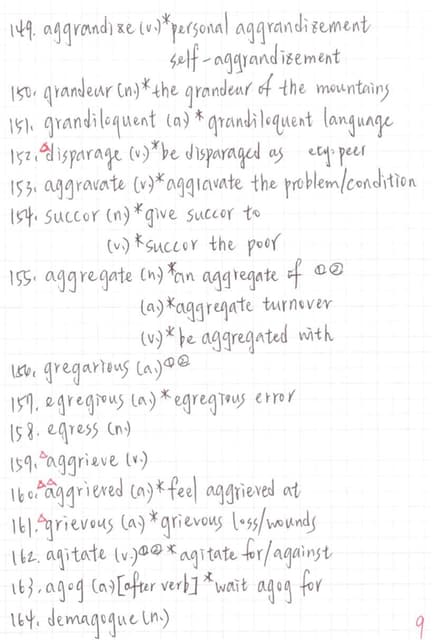 149. aggrandize (v.)*personal aggrandizement
self-aggrandizement
150. grandeur (n.)*the grandeur of the mountains
151. grandiloquent (a.)*grandiloquent language
152.△disparage (v.)*be disparaged as ety:peer
153. aggravate (v.)*aggravate the problem/condition
154. succor (n.)*give succor to
(v.)*succor the poor
155. aggregate (n.)*an aggregate of ①②
(a.)*aggregate turnover
(v.)*be aggregated with
156. gregarious (a.)①②
157. egregious (a.)*egregious error
158. egress (n.)
159.△aggrieve (v.)
160.△△aggrieved (a.)*feel aggrieved at
161.△grievous (a.)*grievous loss/wounds
162. agitate (v.)①②*agitate for/against
163. agog (a.)[after verb]*wait agog for
164. demagogue (n.)
9